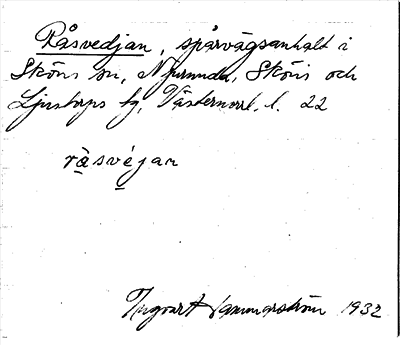 Råsvedjan, spårvägsanhalt i
Sköns sn, Njurunda, Sköns och
Ljustorps tg, Västernorrl. l. 22
råsvéjan
Ingvart 1932